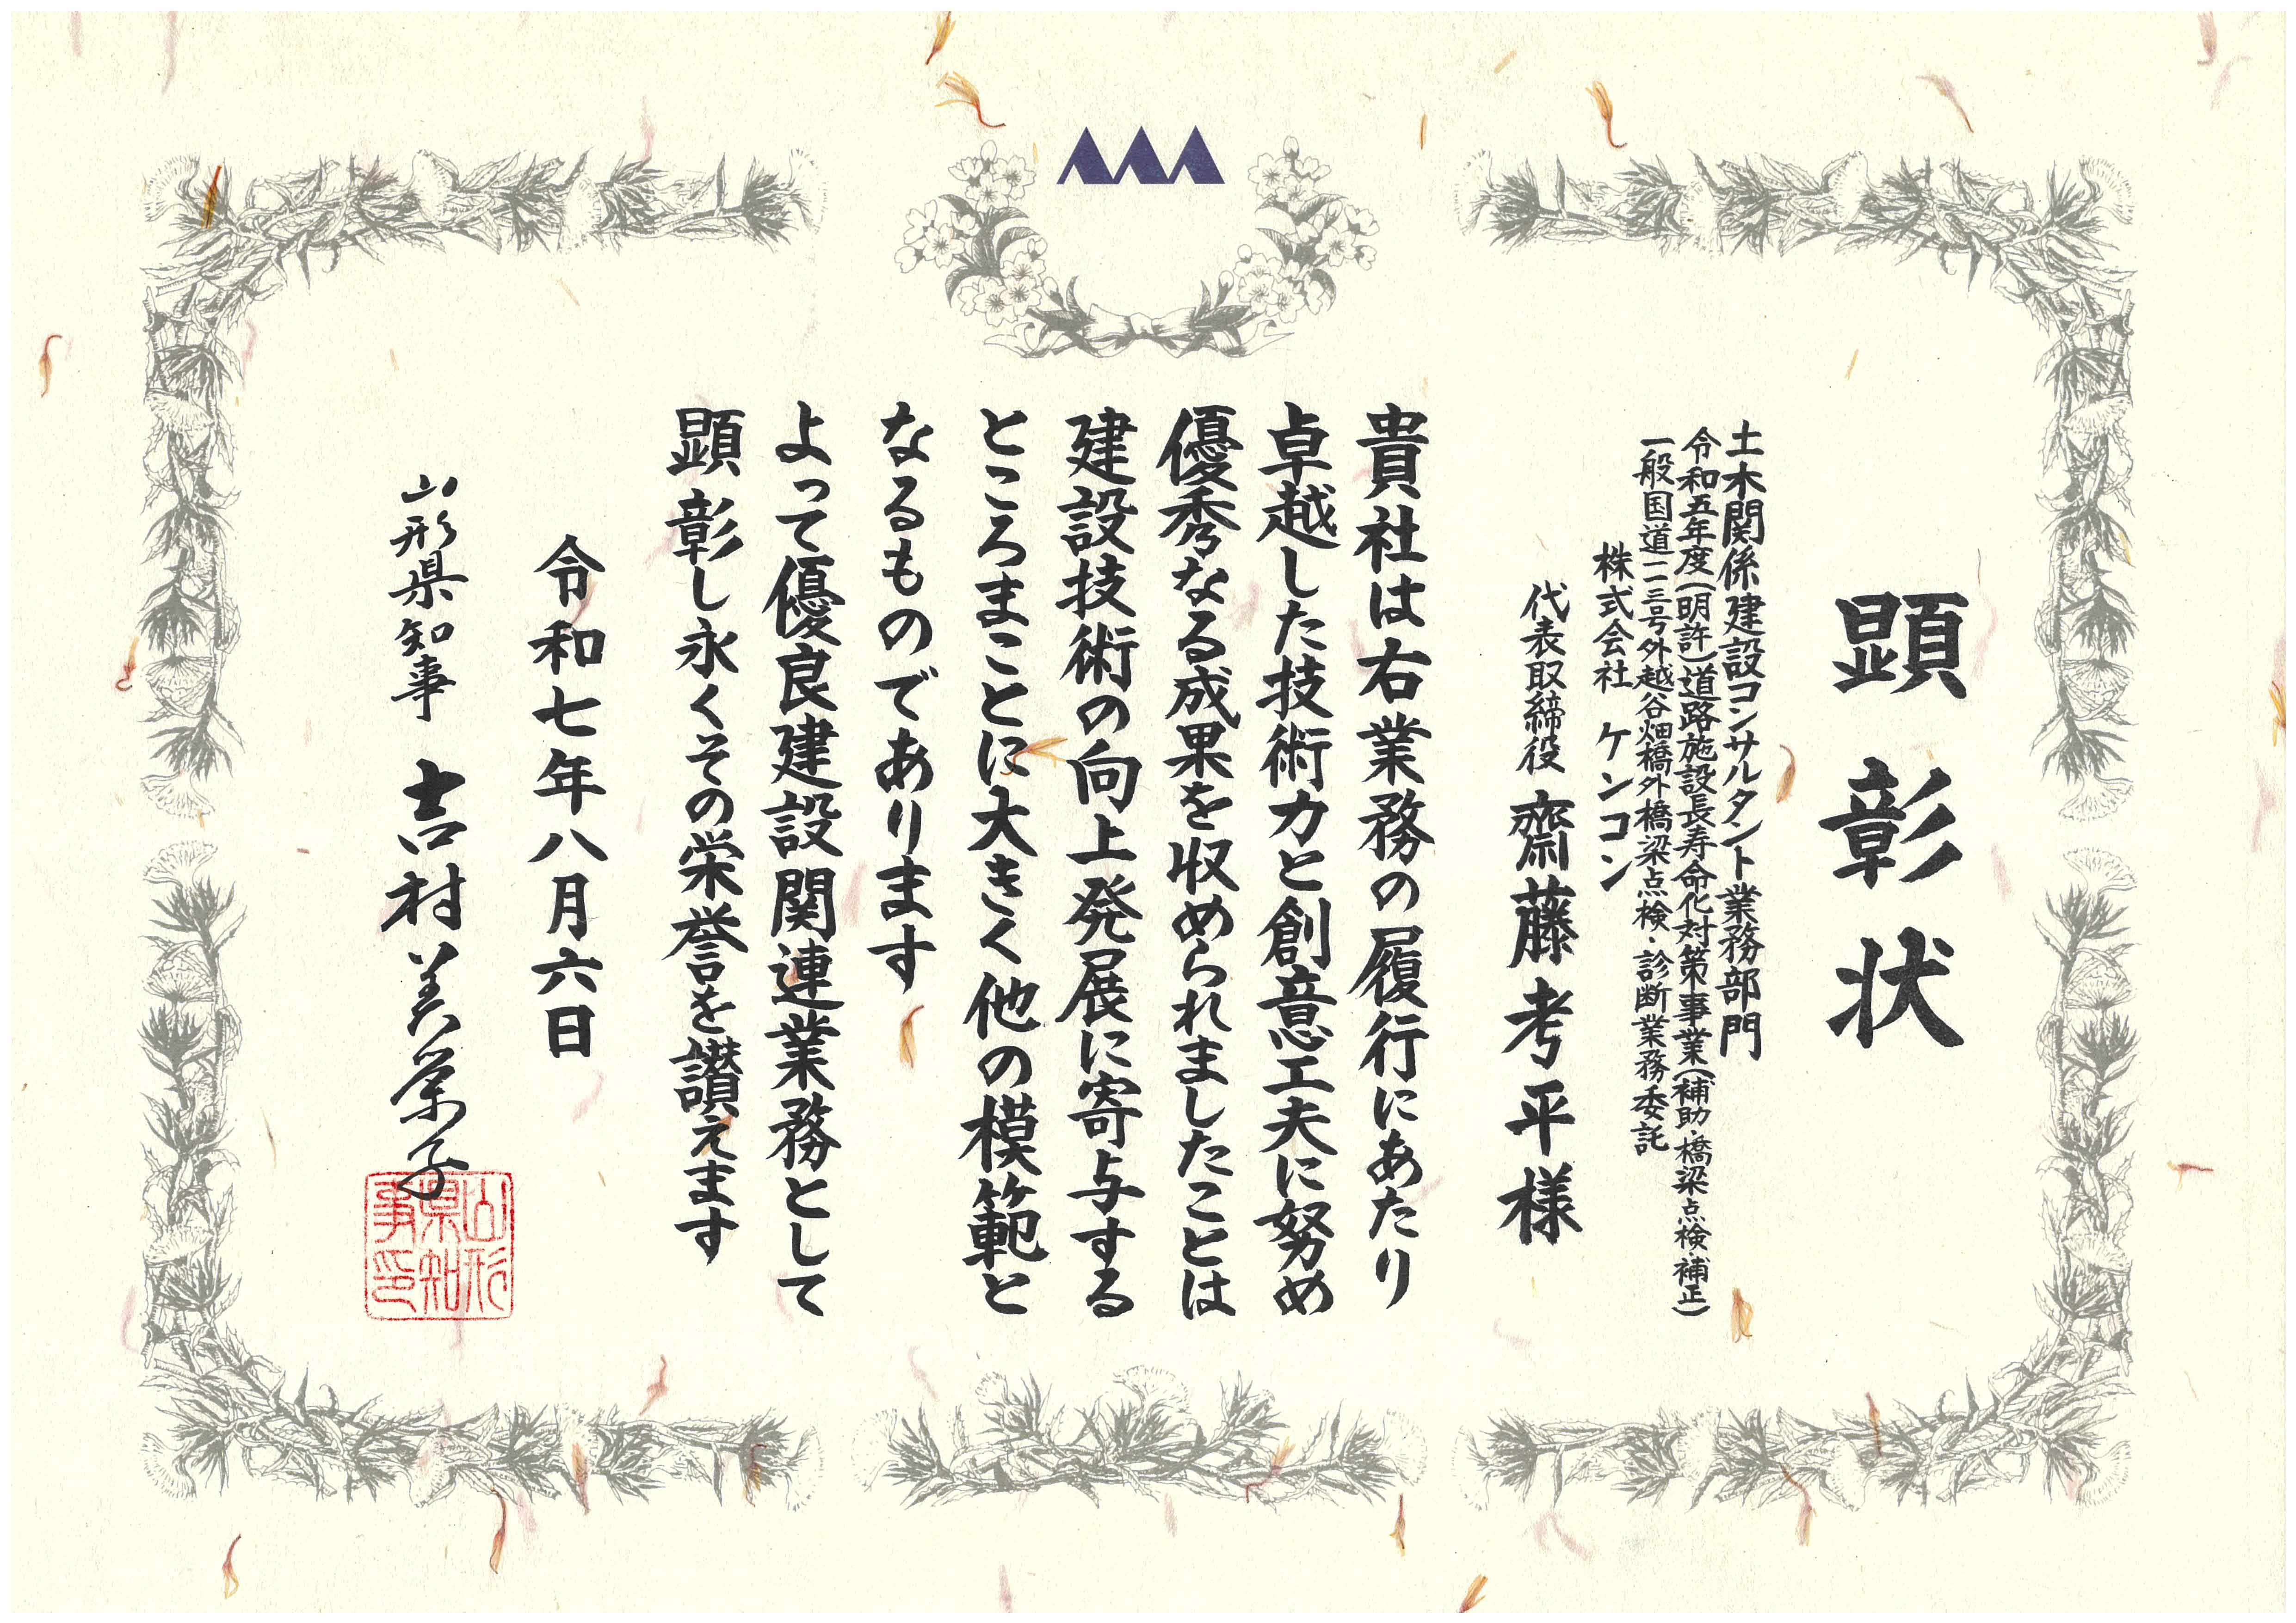 顕彰状
土木関係建設コンサルタント業務部門
令和五年度(明許)道路施設長寿命化対策事業(補助・橋梁点検・補正)
一般国道一一三号外越谷畑橋外橋梁点検・診断業務委託
株式会社 ケンコン
代表取締役 齋藤考平様
貴社は右業務の履行にあたり
卓越した技術力と創意工夫に努め
優秀なる成果を収められましたことは
建設技術の向上発展に寄与する
ところまことに大きく他の模範と
なるものであります
よって優良建設関連業務として
顕彰し永くその栄誉を讃えます
令和七年八月六日
山形県知事 吉村美栄子
山形
県知
事印